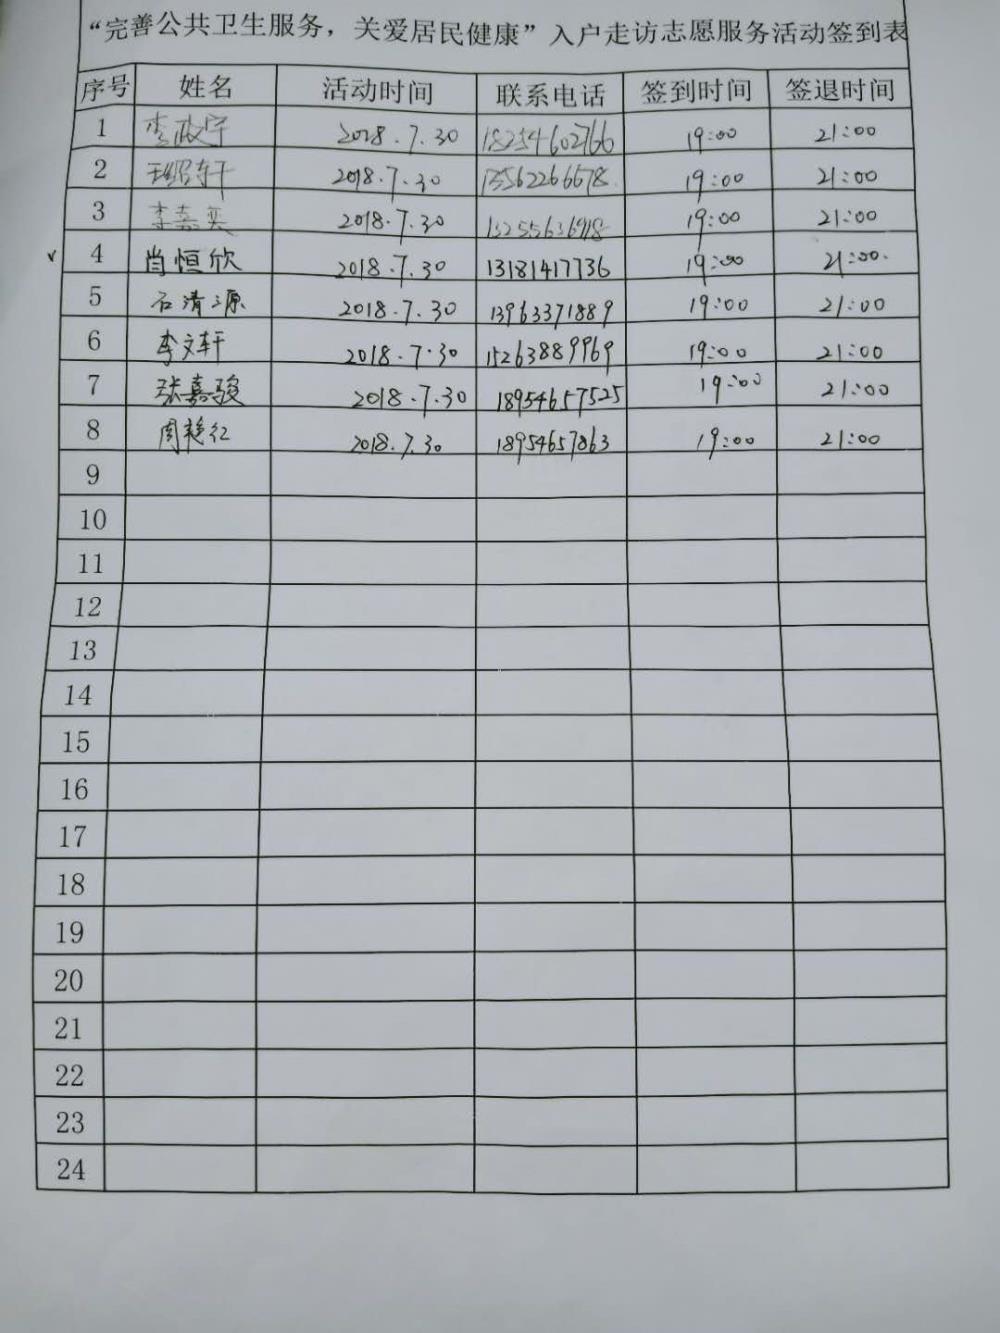 “完善公共卫生服务，关爱居民健康”入户走访志愿服务活动签到表
序号 姓名 活动时间 联系电话 签到时间 签退时间
1 李政宇 2018.7.30 18254602766 19:00 21:00
2 轩 2018.7.30 13562266678 19:00 21:00
3 李嘉奕 2018.7.30 19:00 21:00
4 肖恒欣 2018.7.30 13181417736 19:00 21:00
5 石清源 2018.7.30 13963371889 19:00 21:00
6 李文轩 2018.7.30 15263889969 19:00 21:00
7 张嘉骏 2018.7.30 18954657525 19:00 21:00
8 周艳红 2018.7.30 18954657863 19:00 21:00
9
10
11
12
13
14
15
16
17
18
19
20
21
22
23
24